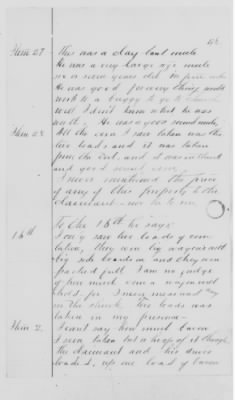 Item 27 This was a clay bank mule
He was a very large size mule
six or seven years old in fine order
He was good for everything, would
work to a buggy to go to church
well I don't know what he was
worth. He was a good sound mule,
Item 28 All the corn I saw taken was the
two loads, and it was taken
from the crib, and it was in shuck
and good sound corn
I never mentioned the price
of any of this property to the
claimant - nor he to me
To the 15th he says:
15th I only saw two loads of corn
taken, they were big wagons with
big side boards on and they were
packed full. I am no judge
of how much corn a wagon will
hold, for I never measured any
in the shuck. Two loads was
taken in my presence
Item 2. I cant say how much bacon
I seen taken but a heap of it though
the claimant and his drove
loaded, up one load of bacon